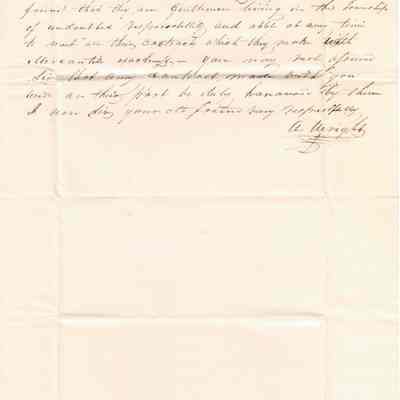 found that they are Gentlemen living in this township
of undoubted responsibility and able at any time
to meet on their contract which they make with
Mercantile you may rest assured
Sir that any contract made with you
on their part be duly honoured by them
I am Sir your obt friend very respectfully
A. Wright